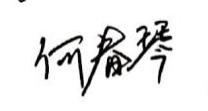 何春琴